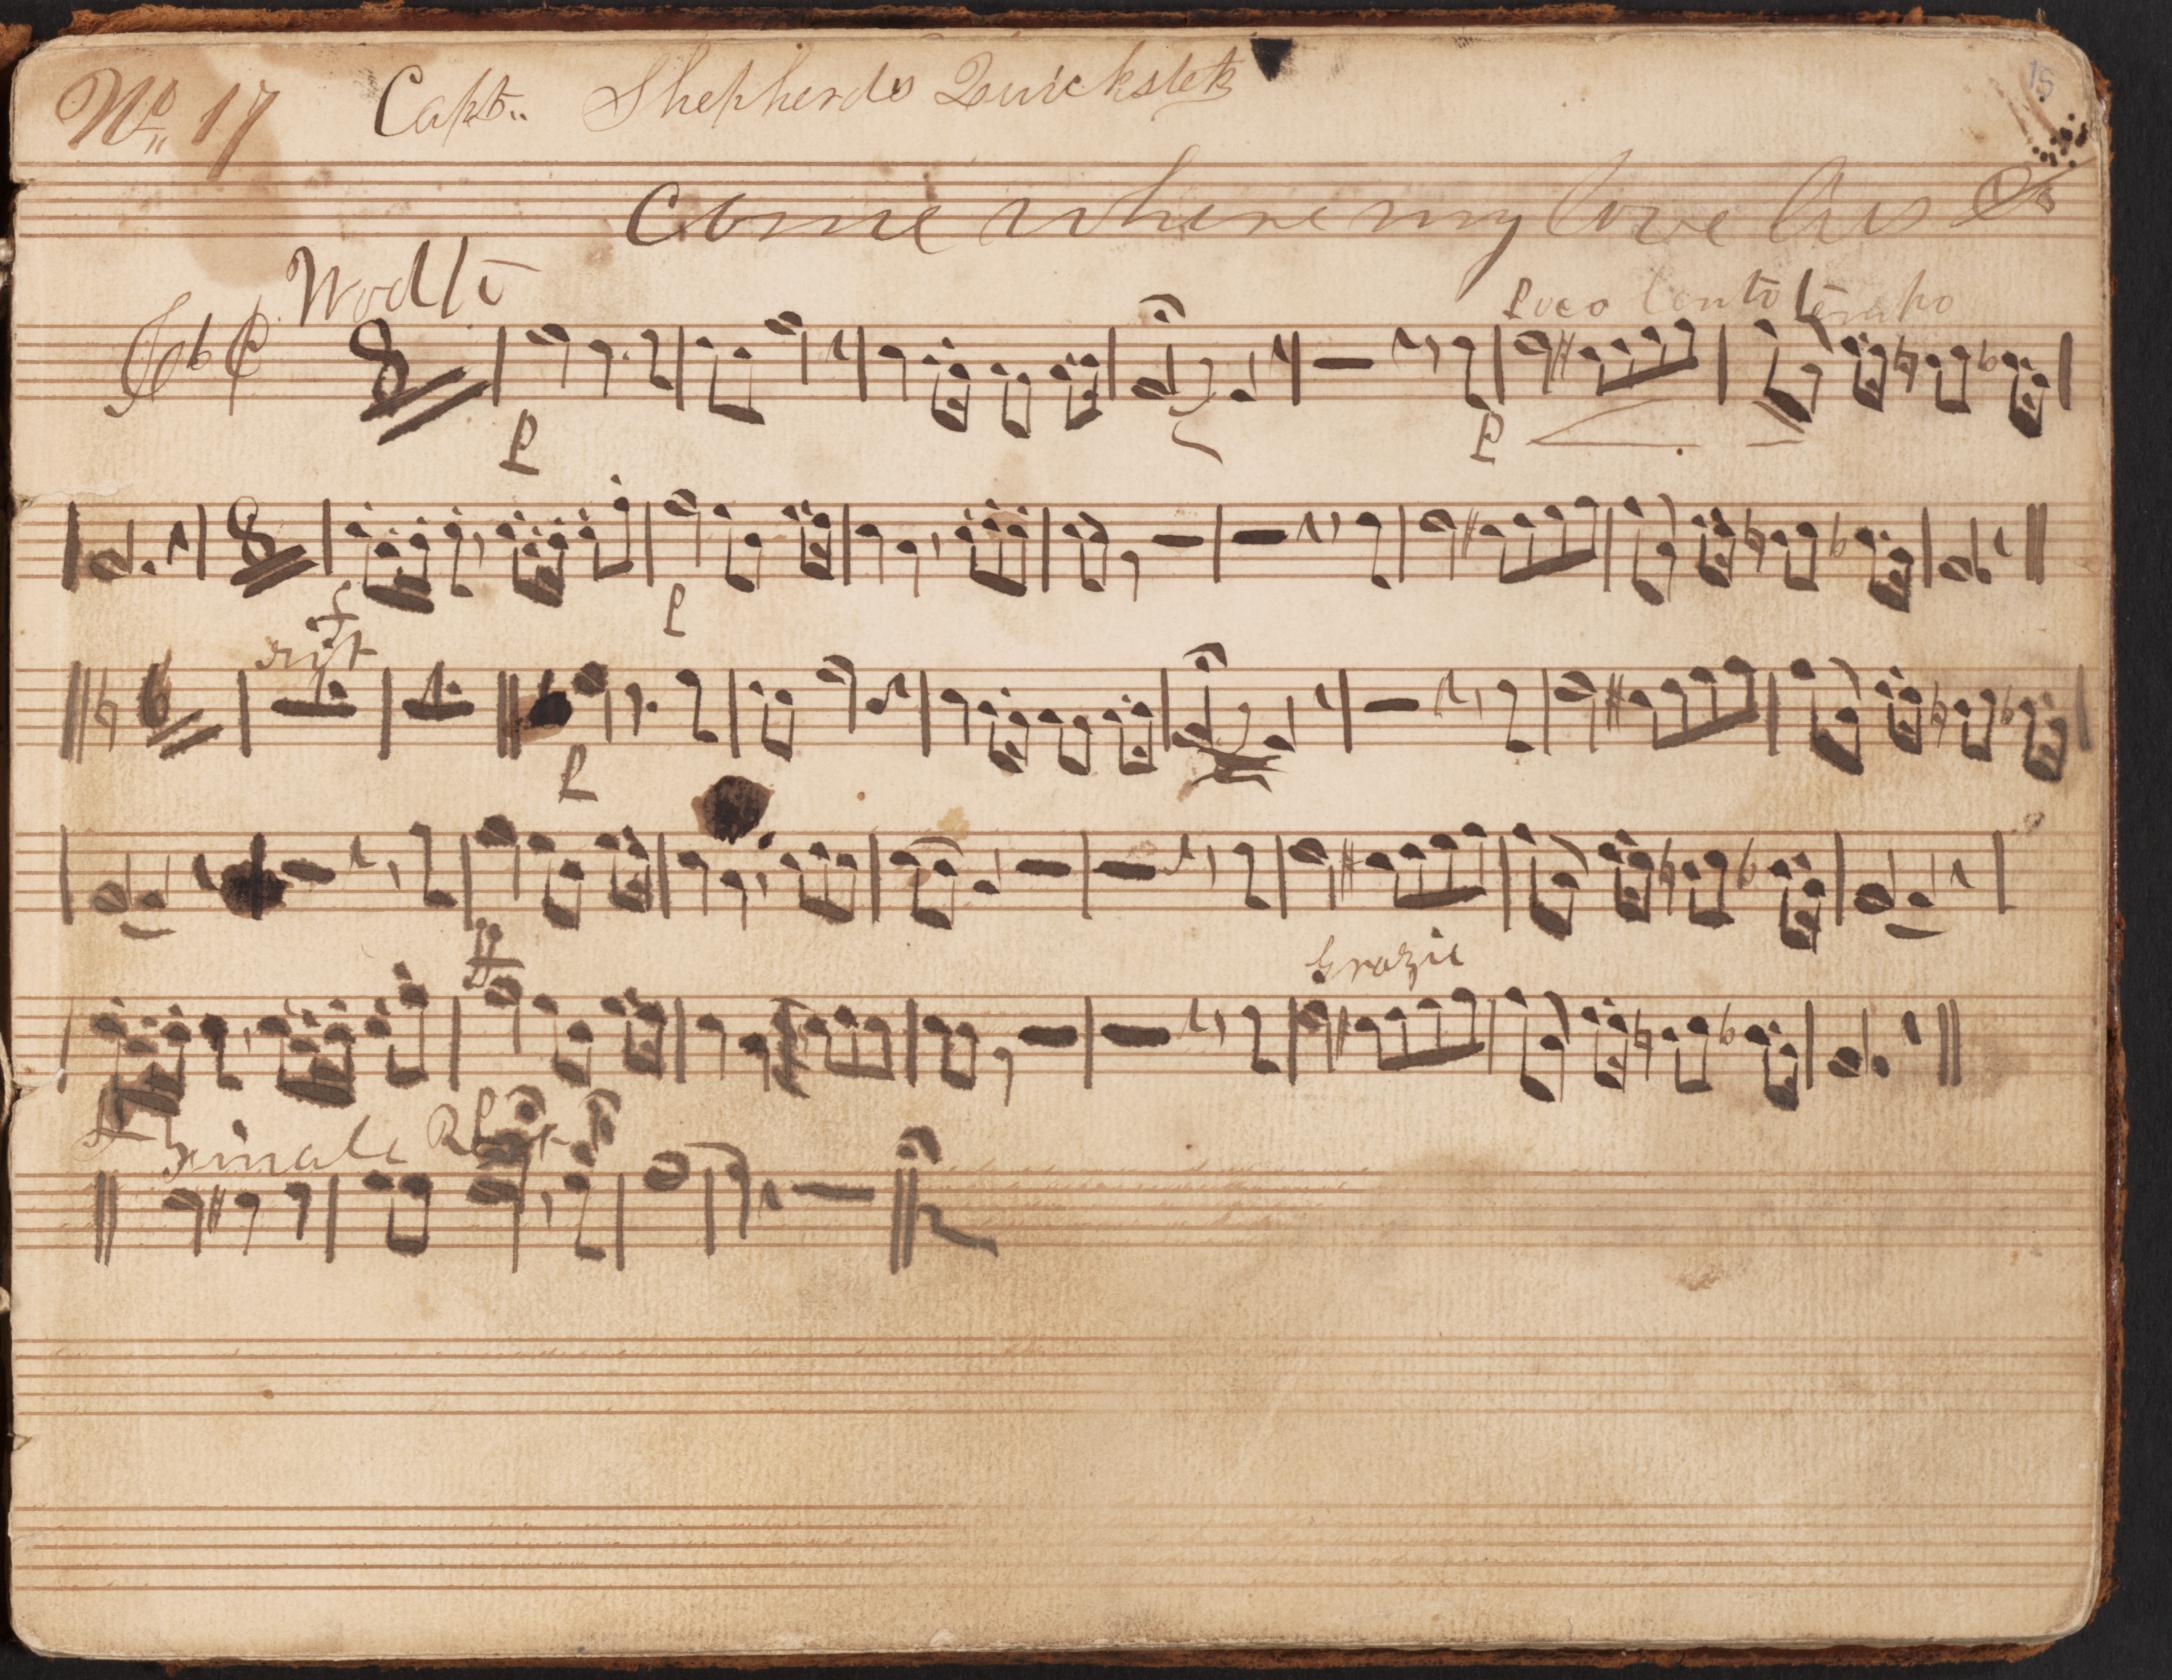 No 17 Capt. Shepherds Quickstep
15
Come where my love lies
Modto
Poco Lento Tempo
8
P
P
8
f
P
6
P
ff
Grazie
Finale